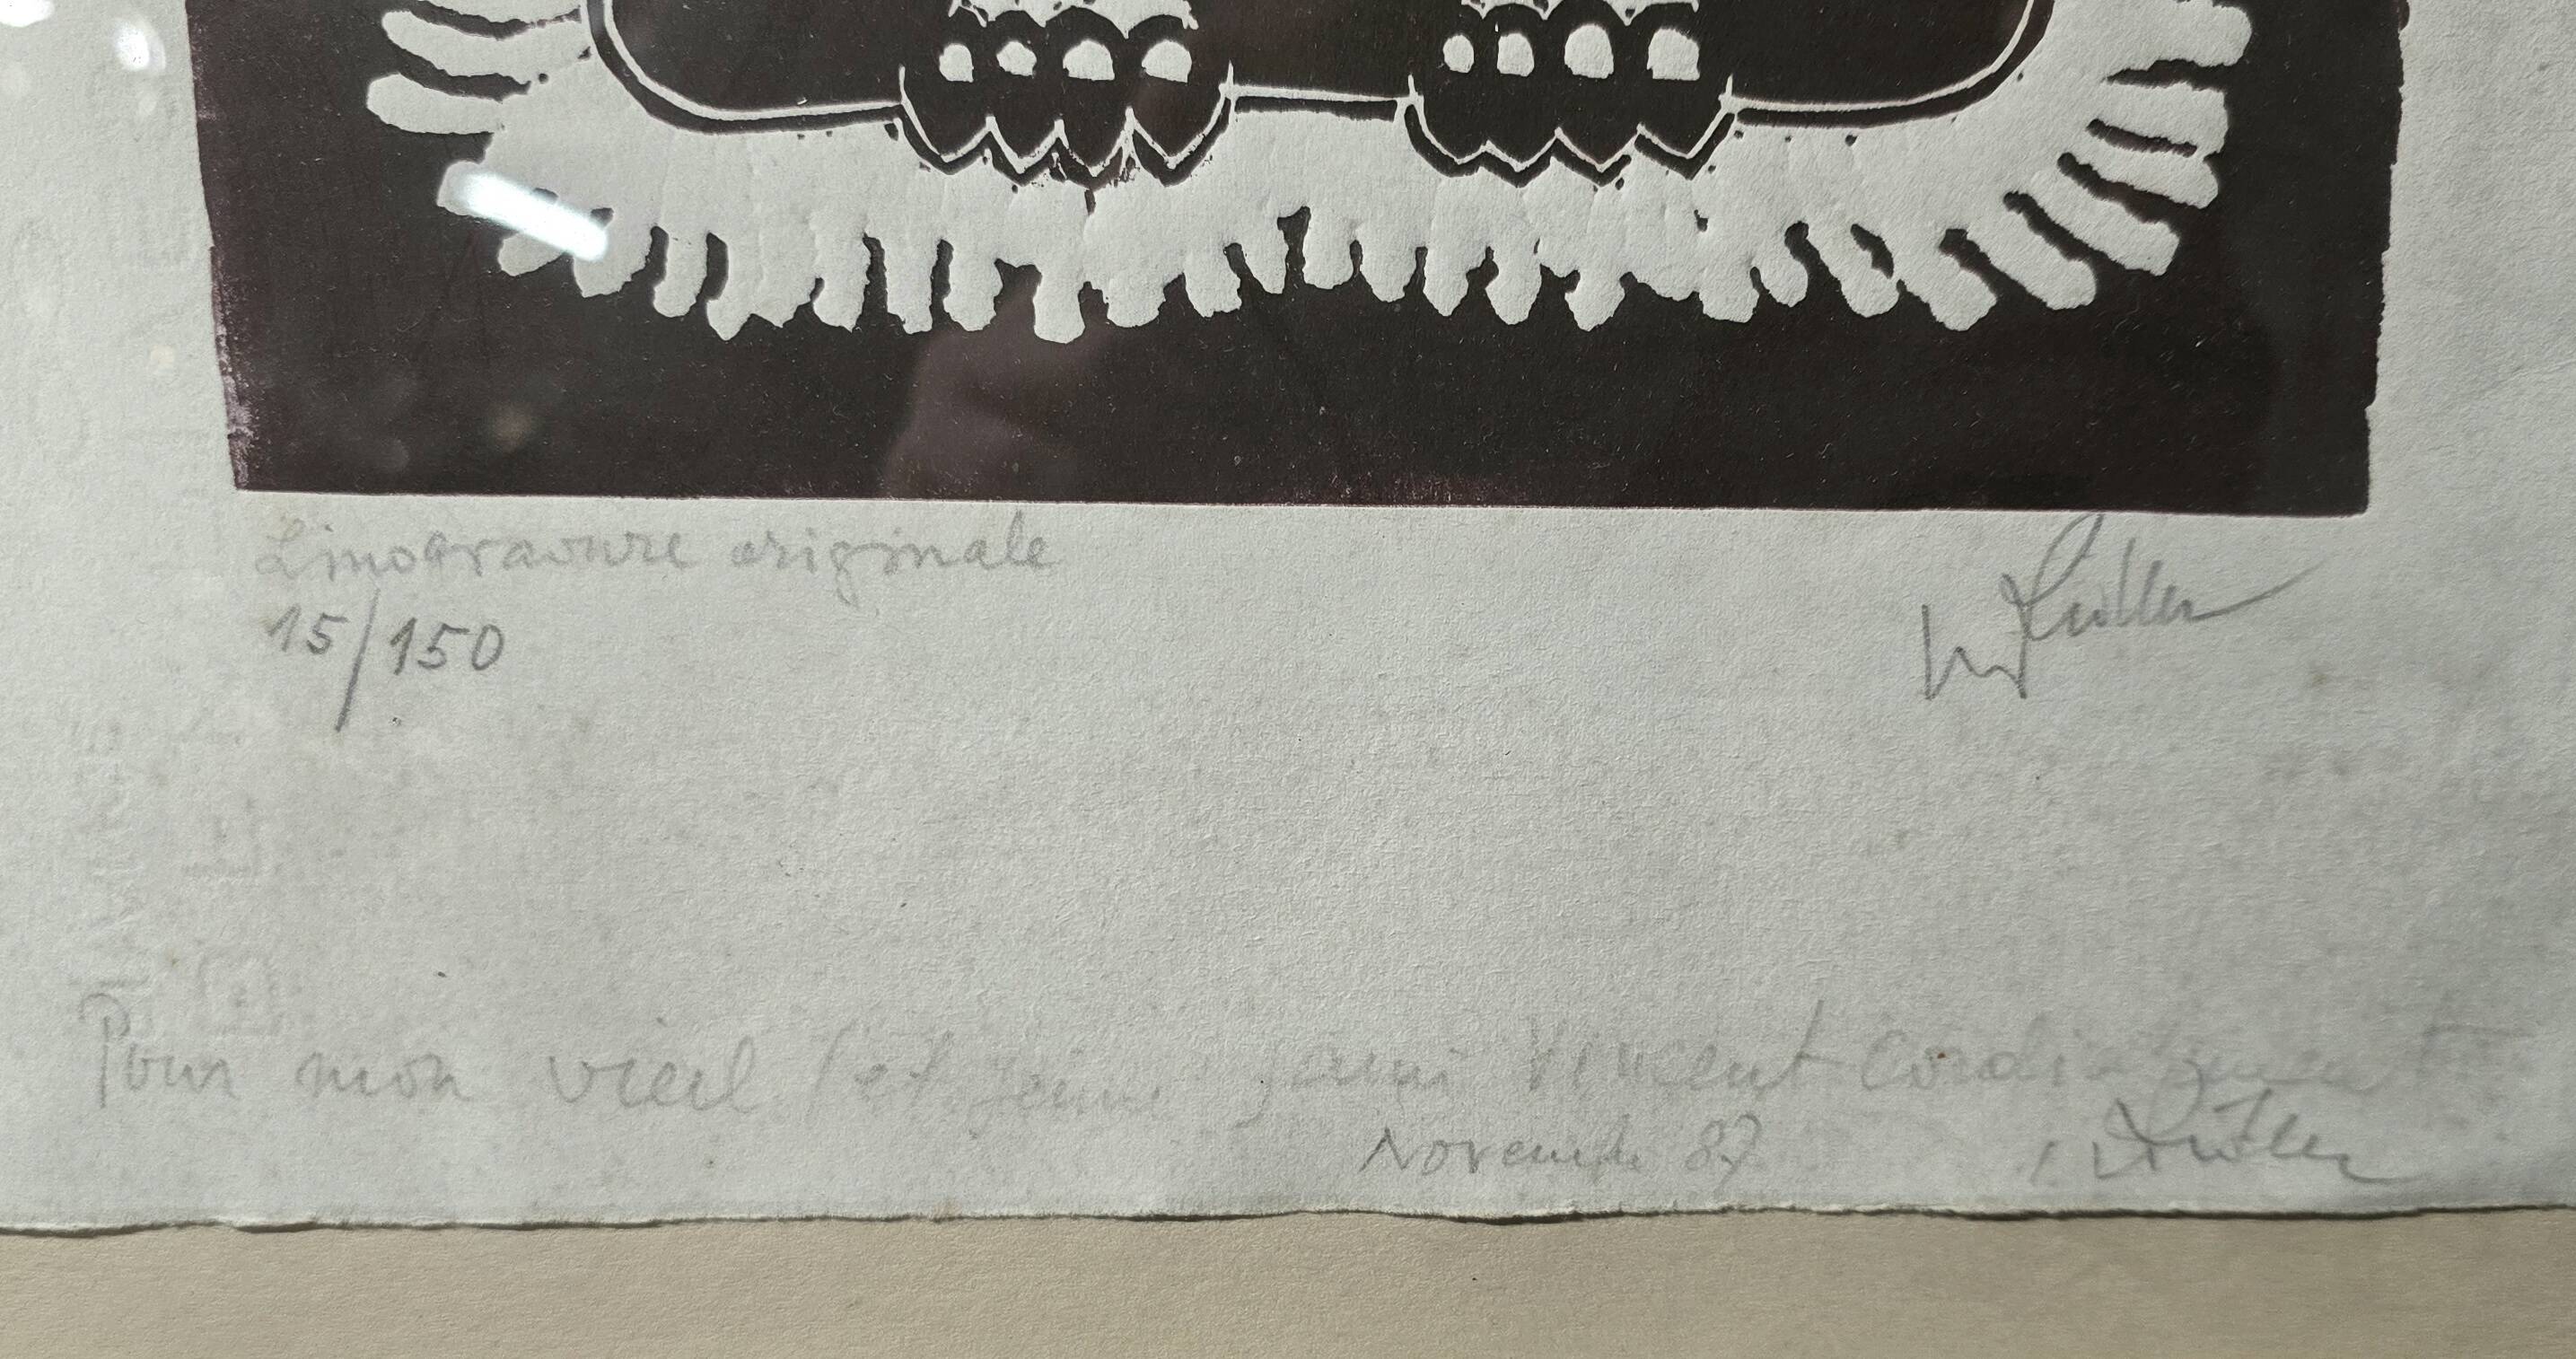 Linogravure originale
15/150
Pour mon vieil (et jeune) ami Vincent Cordialement
Novembre 87